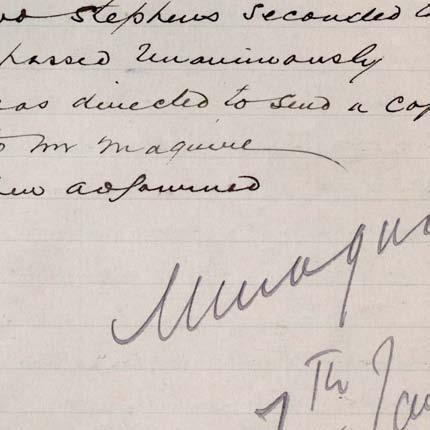 Stephens Seconded
passed Unanimously
was directed to send a cop
to Mr Maguire
adjourned
7th Jan